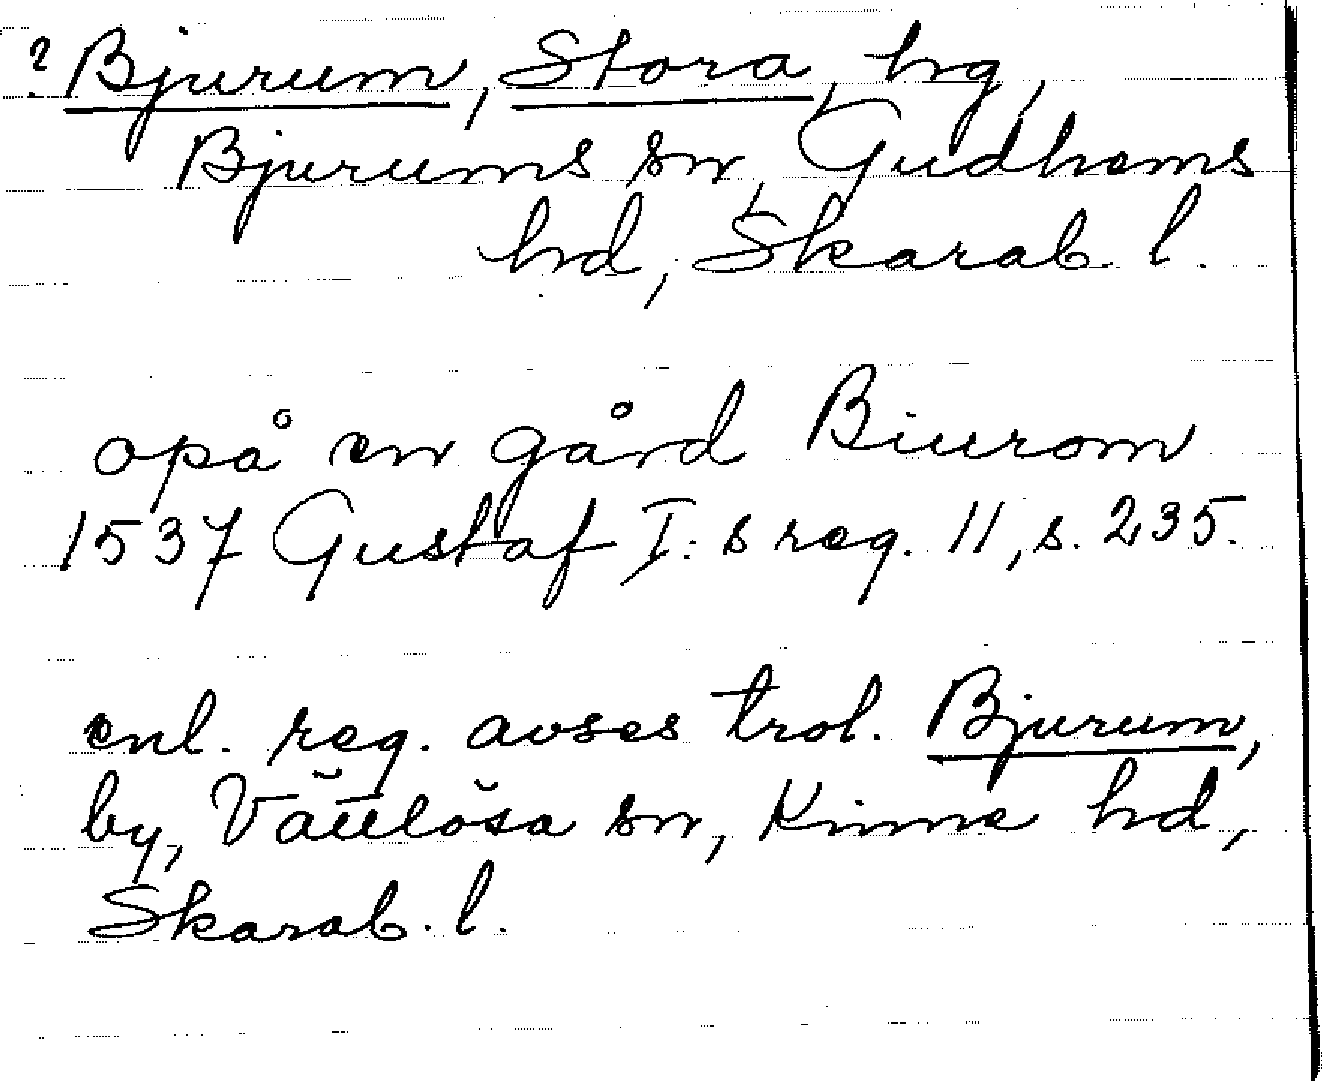 ? Bjurum, Stora, hg,
Bjurums sn, Gudhems
hd, Skarab. l.
opå en gård Biurom
1537 Gustaf I:s reg. 11, s. 235.
enl. reg. avses trol. Bjurum,
by, Vättlösa sn, Kinne hd,
Skarab. l.